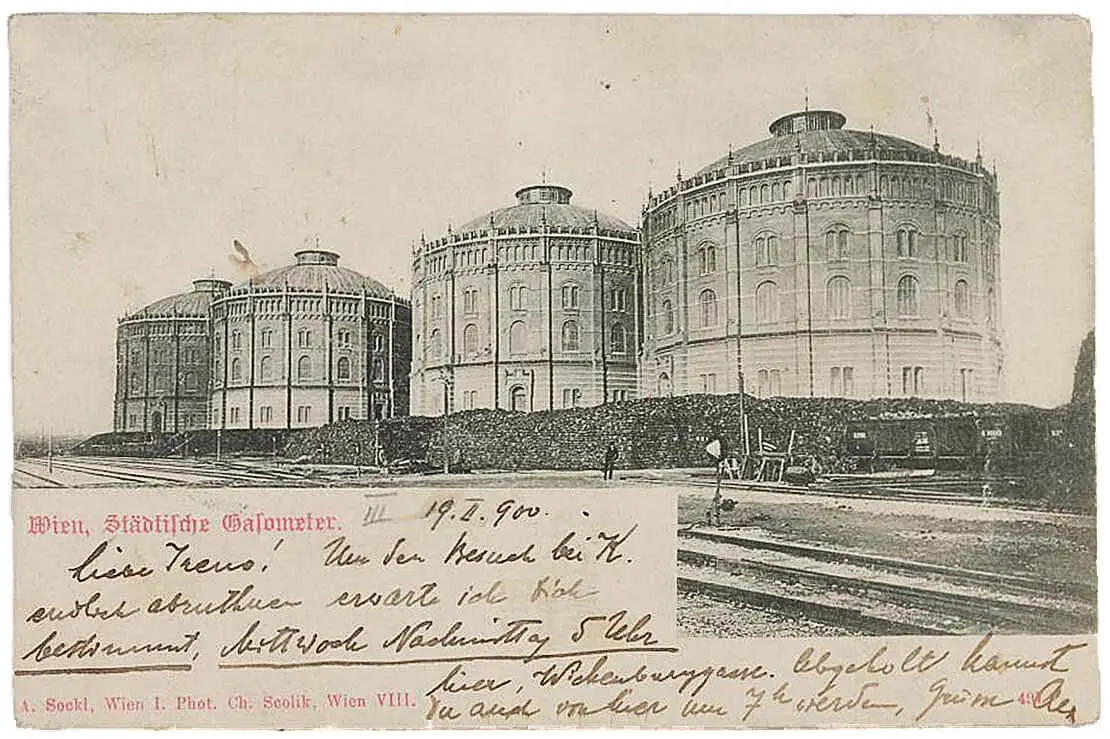 Wien, Städtische Gasometer.
III 19.II.900.
liebe Irens! Um den Besuch bei K.
endlich abzuthuen erwarte ich Dich
bestimmt, Mittwoch Nachmittag 5 Uhr
hier, Wickenburggasse. Abgeholt kannst
Du auch von hier um 7h werden,
A. Sockl, Wien I. Phot. Ch. Scolik, Wien VIII.